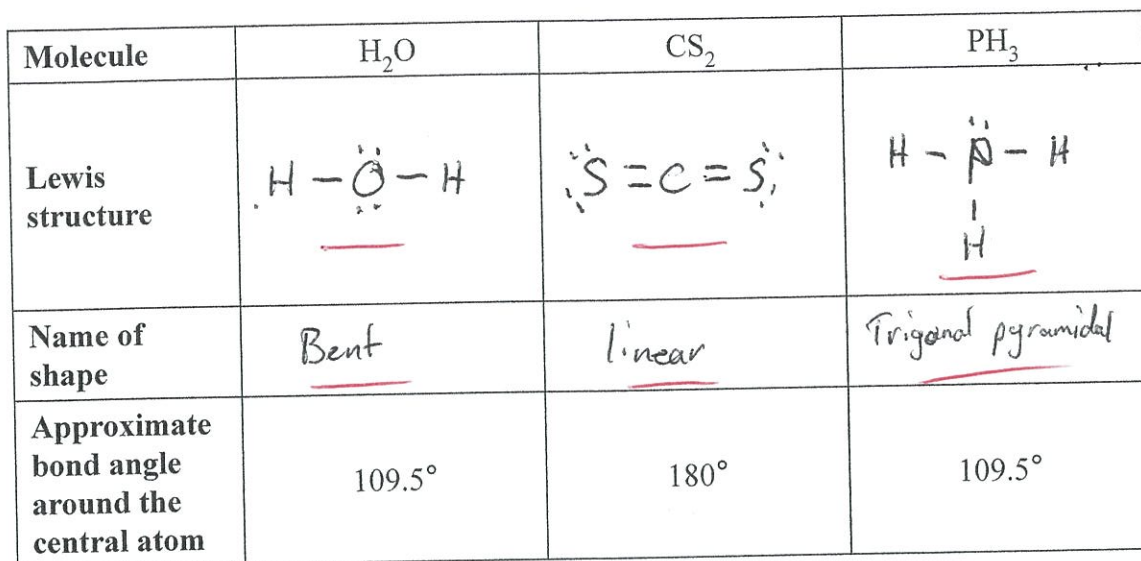 Molecule H₂O CS₂ PH₃
Lewis structure
H – O – H
S = C = S
H – P – H
H
Name of shape
Bent linear Trigonal pyramidal
Approximate
bond angle
around the
central atom
109.5° 180° 109.5°